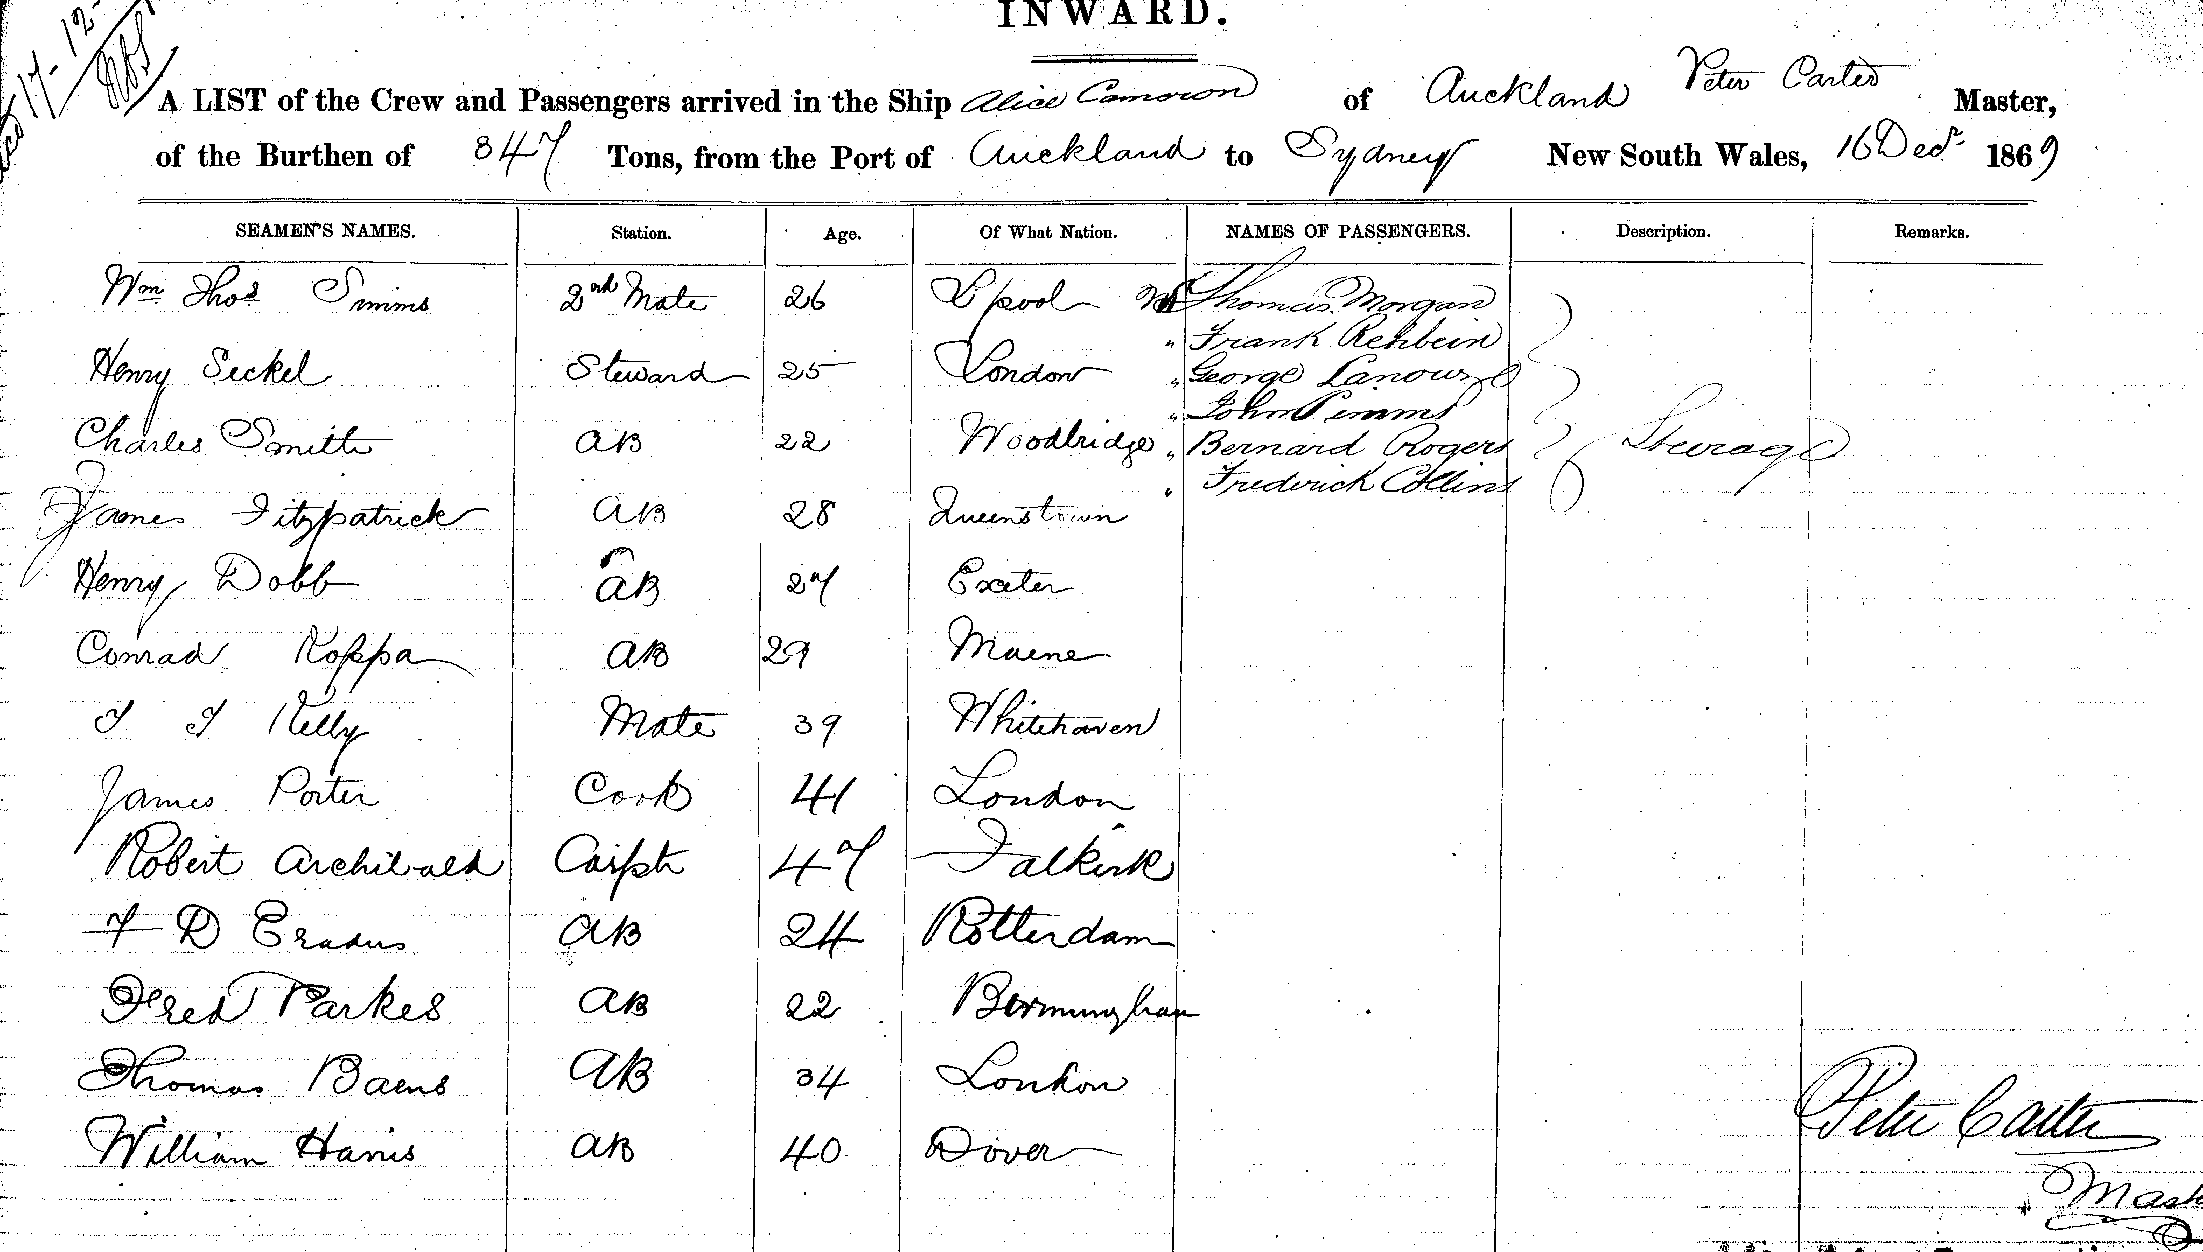 INWARD.
17-12-
A LIST of the Crew and Passengers arrived in the Ship Alice Cameron of Auckland Peter Carter Master,
of the Burthen of 347 Tons, from the Port of Auckland to Sydney New South Wales, 16 Decr 1869
SEAMEN'S NAMES. Station. Age. Of What Nation. NAMES OF PASSENGERS. Description. Remarks.
Wm Thos Simms 2nd Mate 26 L'pool Mr Thomas Morgan
" Frank Rehbein
Henry Seckel Steward 25 London " George
" John Pimms
Charles Smith AB 22 Woodbridge " Bernard Rogers Steerage
" Frederick Collins
James Fitzpatrick AB 28 Queenstown
Henry Dobb AB 27 Exeter
Conrad Koppa AB 29 Maene
J J Kelly Mate 39 Whitehaven
James Porter Cook 41 London
Robert Archibald Carptr 47 Falkirk
F D Eradus AB 24 Rotterdam
Fred Parkes AB 22 Bermingham
Thomas Baens AB 34 London
William Harris AB 40 Dover
Peter Carter
Mast